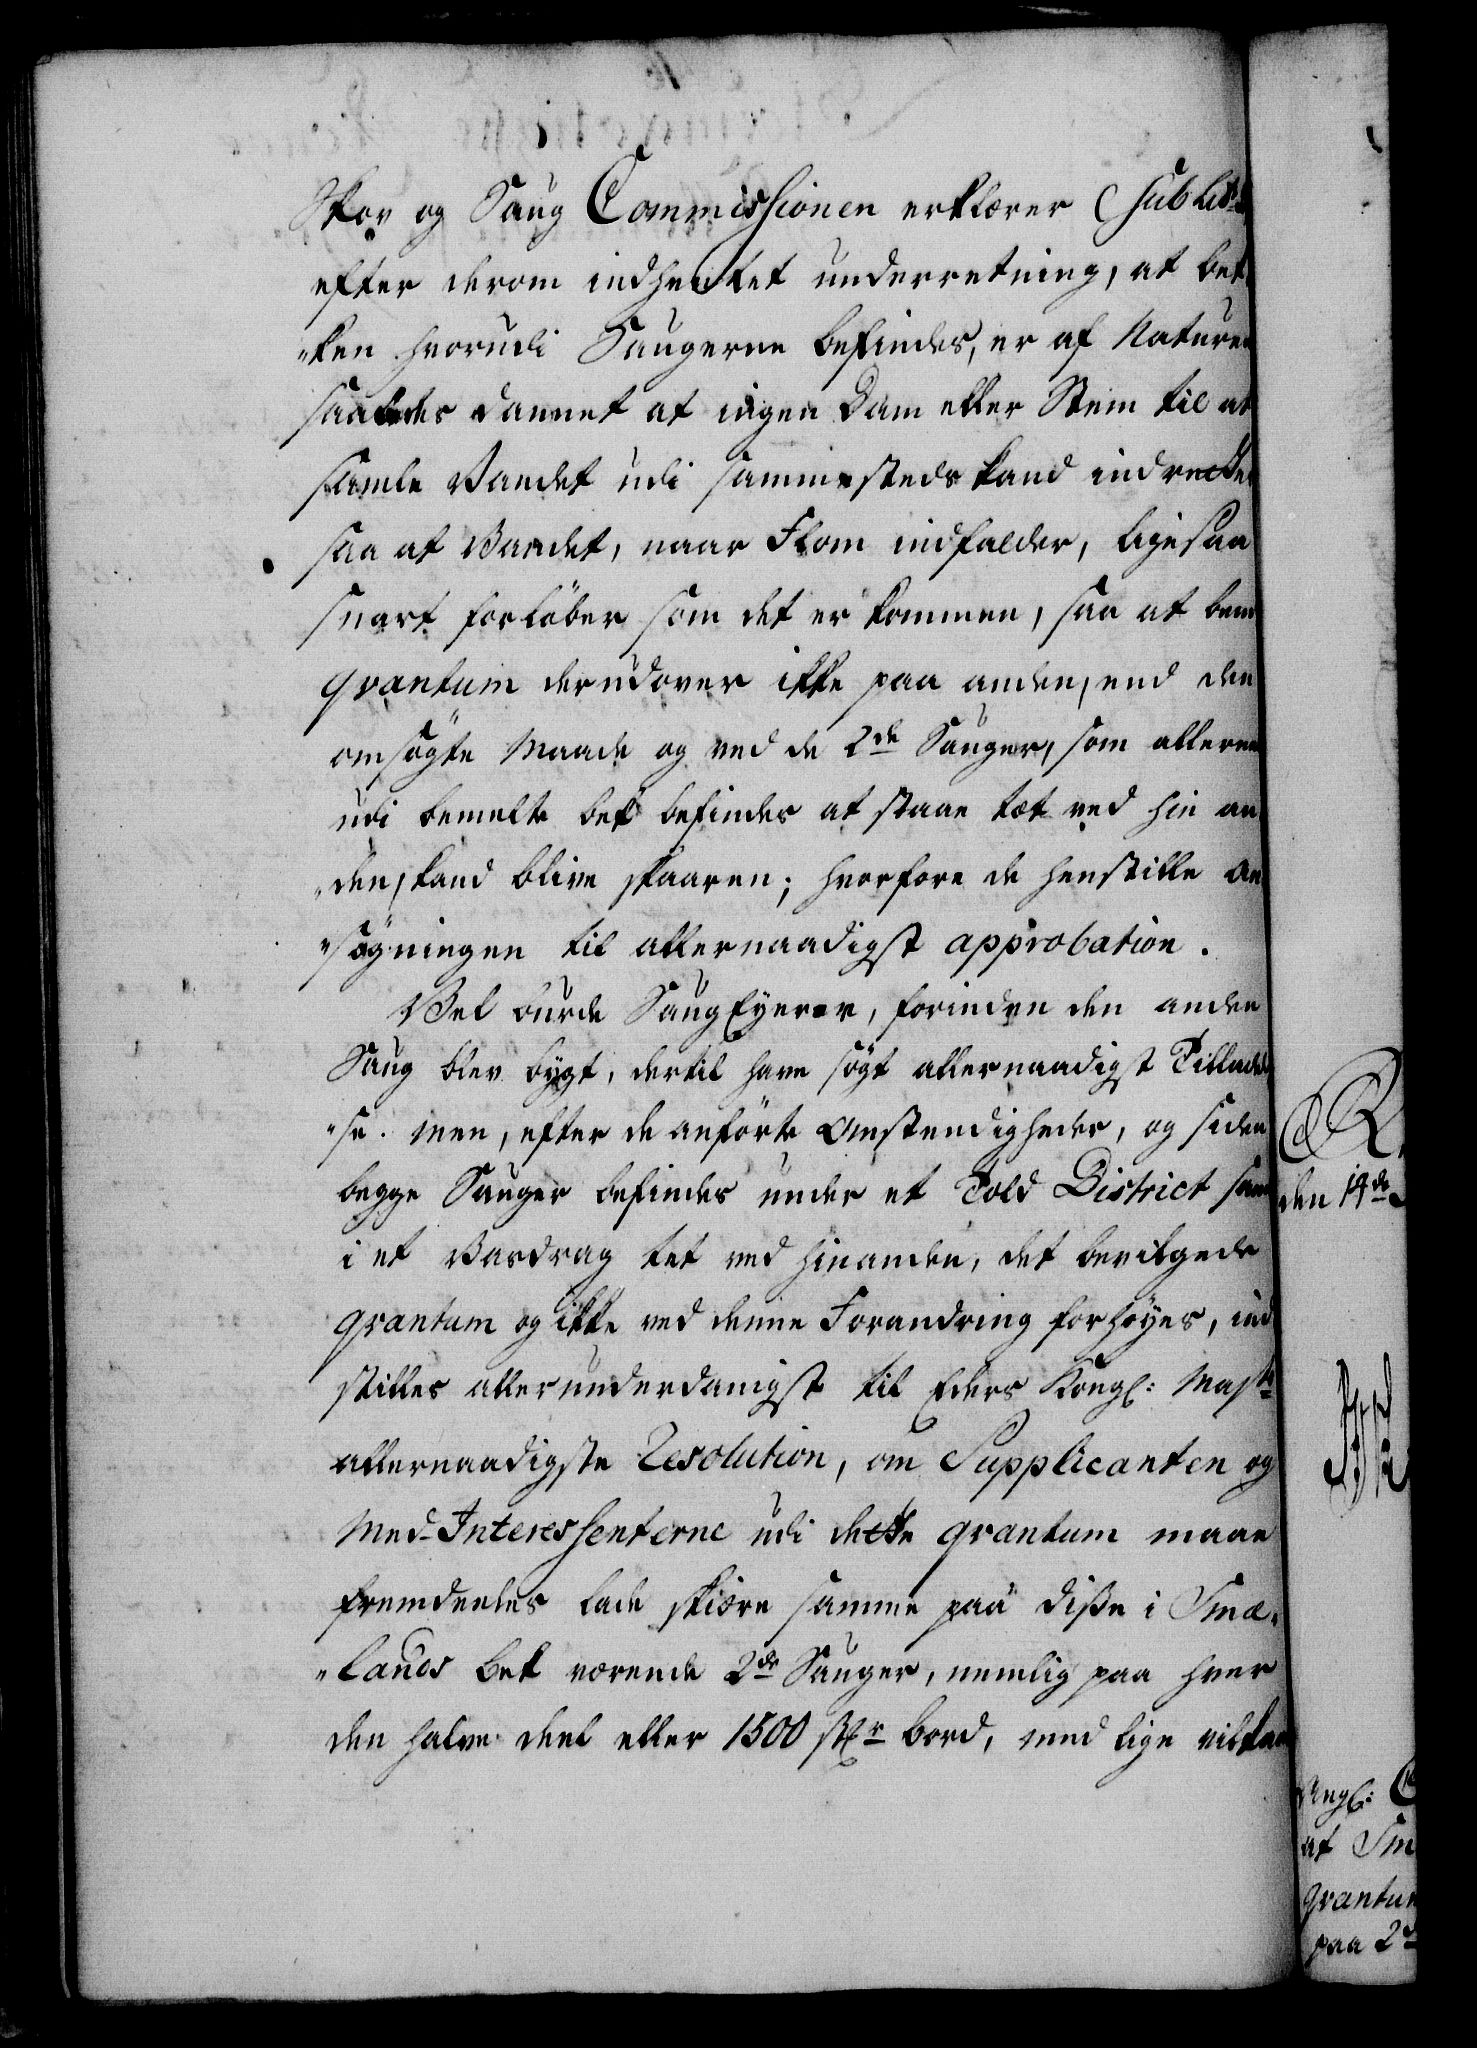 Skov og Saug Commissionen erklærer sub Lit:
efter derom indhentet underretning, at bek
„ken hvorudi Saugerne befindes, er af Naturen
saaledes dannet at ingen Dam eller Stem til at
samle Vandet udi sammesteds kand indrettes
saa at Vandet, naar Flom indfalder, ligesaa
snart forløber som det er kommen, saa at bem
qvantum derudover ikke paa anden, end den
omsøgte Maade og ved de 2de Sauger, som allerede
udi bemelte bek befindes at staae tæt ved hin an
„den, kand blive skaaren; hvorfore de henstille an
„søgningen til allernaadigst approbation.
Vel burde SaugEyeren, forinden den anden
Saug blev bygt, dertil have søgt allernaadigst Tilladel
„se. men, efter de anførte Omstendigheder, og siden
begge Sauger befindes under et Told District samt
i et Vasdrag tet ved hinanden, det bevilgede
qvantum og ikke ved denne Forandring forhøyes, ind
stilles allerunderdanigst til Eders Kongl: Mayts
allernaadigste Resolution, om Supplicanten og
Med-Interessenterne udi dette qvantum maae
fremdeeles lade skiære samme paa disse i Smæ„
„lands bek værende 2de Sauger, nemlig paa hver
den halve deel eller 1500 stkr bord, med lige vilkaar
den 14de
Angl:
at Sm
qvantum
paa 2de